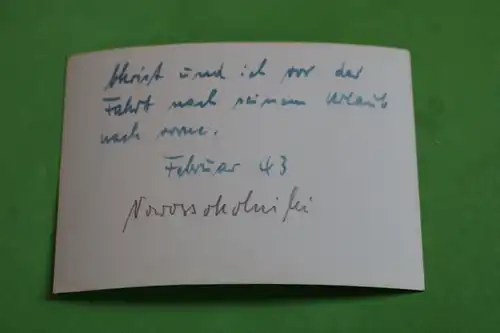 Christ und ich vor der
Fahrt nach seinem Urlaub
nach vorne.
Februar 43
Nowossokolniki